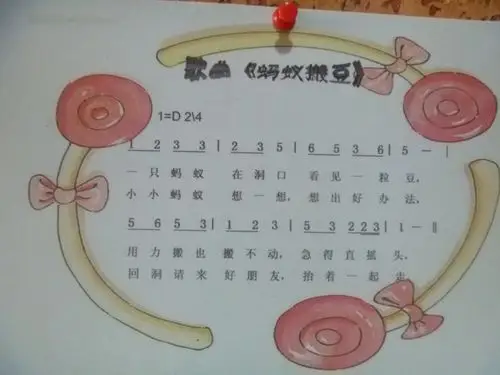 歌曲《蚂蚁搬豆》
1=D 2\4
1 2 3 3 | 2 3 5 | 6 5 3 6 | 5 — |
一只蚂蚁 在洞口 看见一粒豆,
小小蚂蚁 想一想, 想出好办法,
5 6 5 3 | 1 2 3 | 5 3 2 2 3 | 1 — ‖
用力搬也 搬不动, 急得直摇头,
回洞请来 好朋友, 抬着一起走